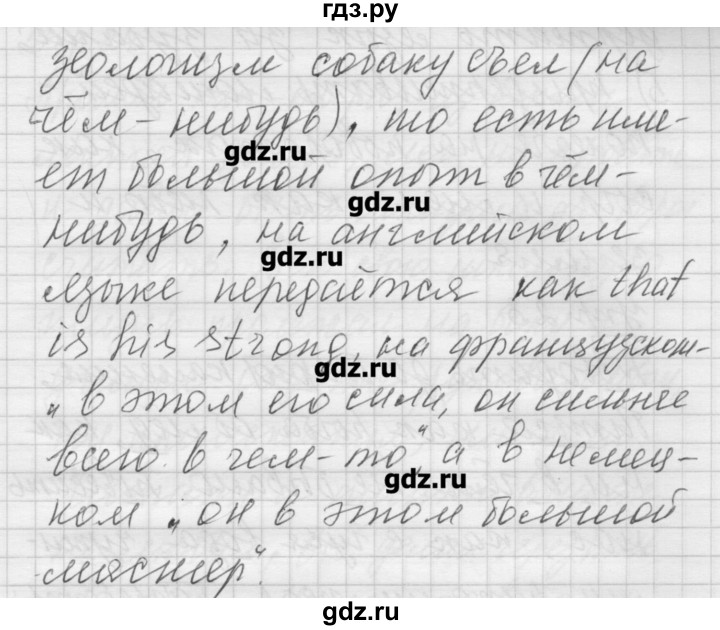 гдз.ру
зеологизм собаку съел (на
чём-нибудь), то есть име-
gdz.ru
ет большой опыт в чём-
gdz.ru
нибудь, на английском
gdz.ru
языке передаётся как that
is his strong, на французском-
gdz.ru
„в этом его сила, он сильнее
всего в чем-то“, а в немец-
gdz.ru
ком „он в этом большой
мастер“.
gdz.ru